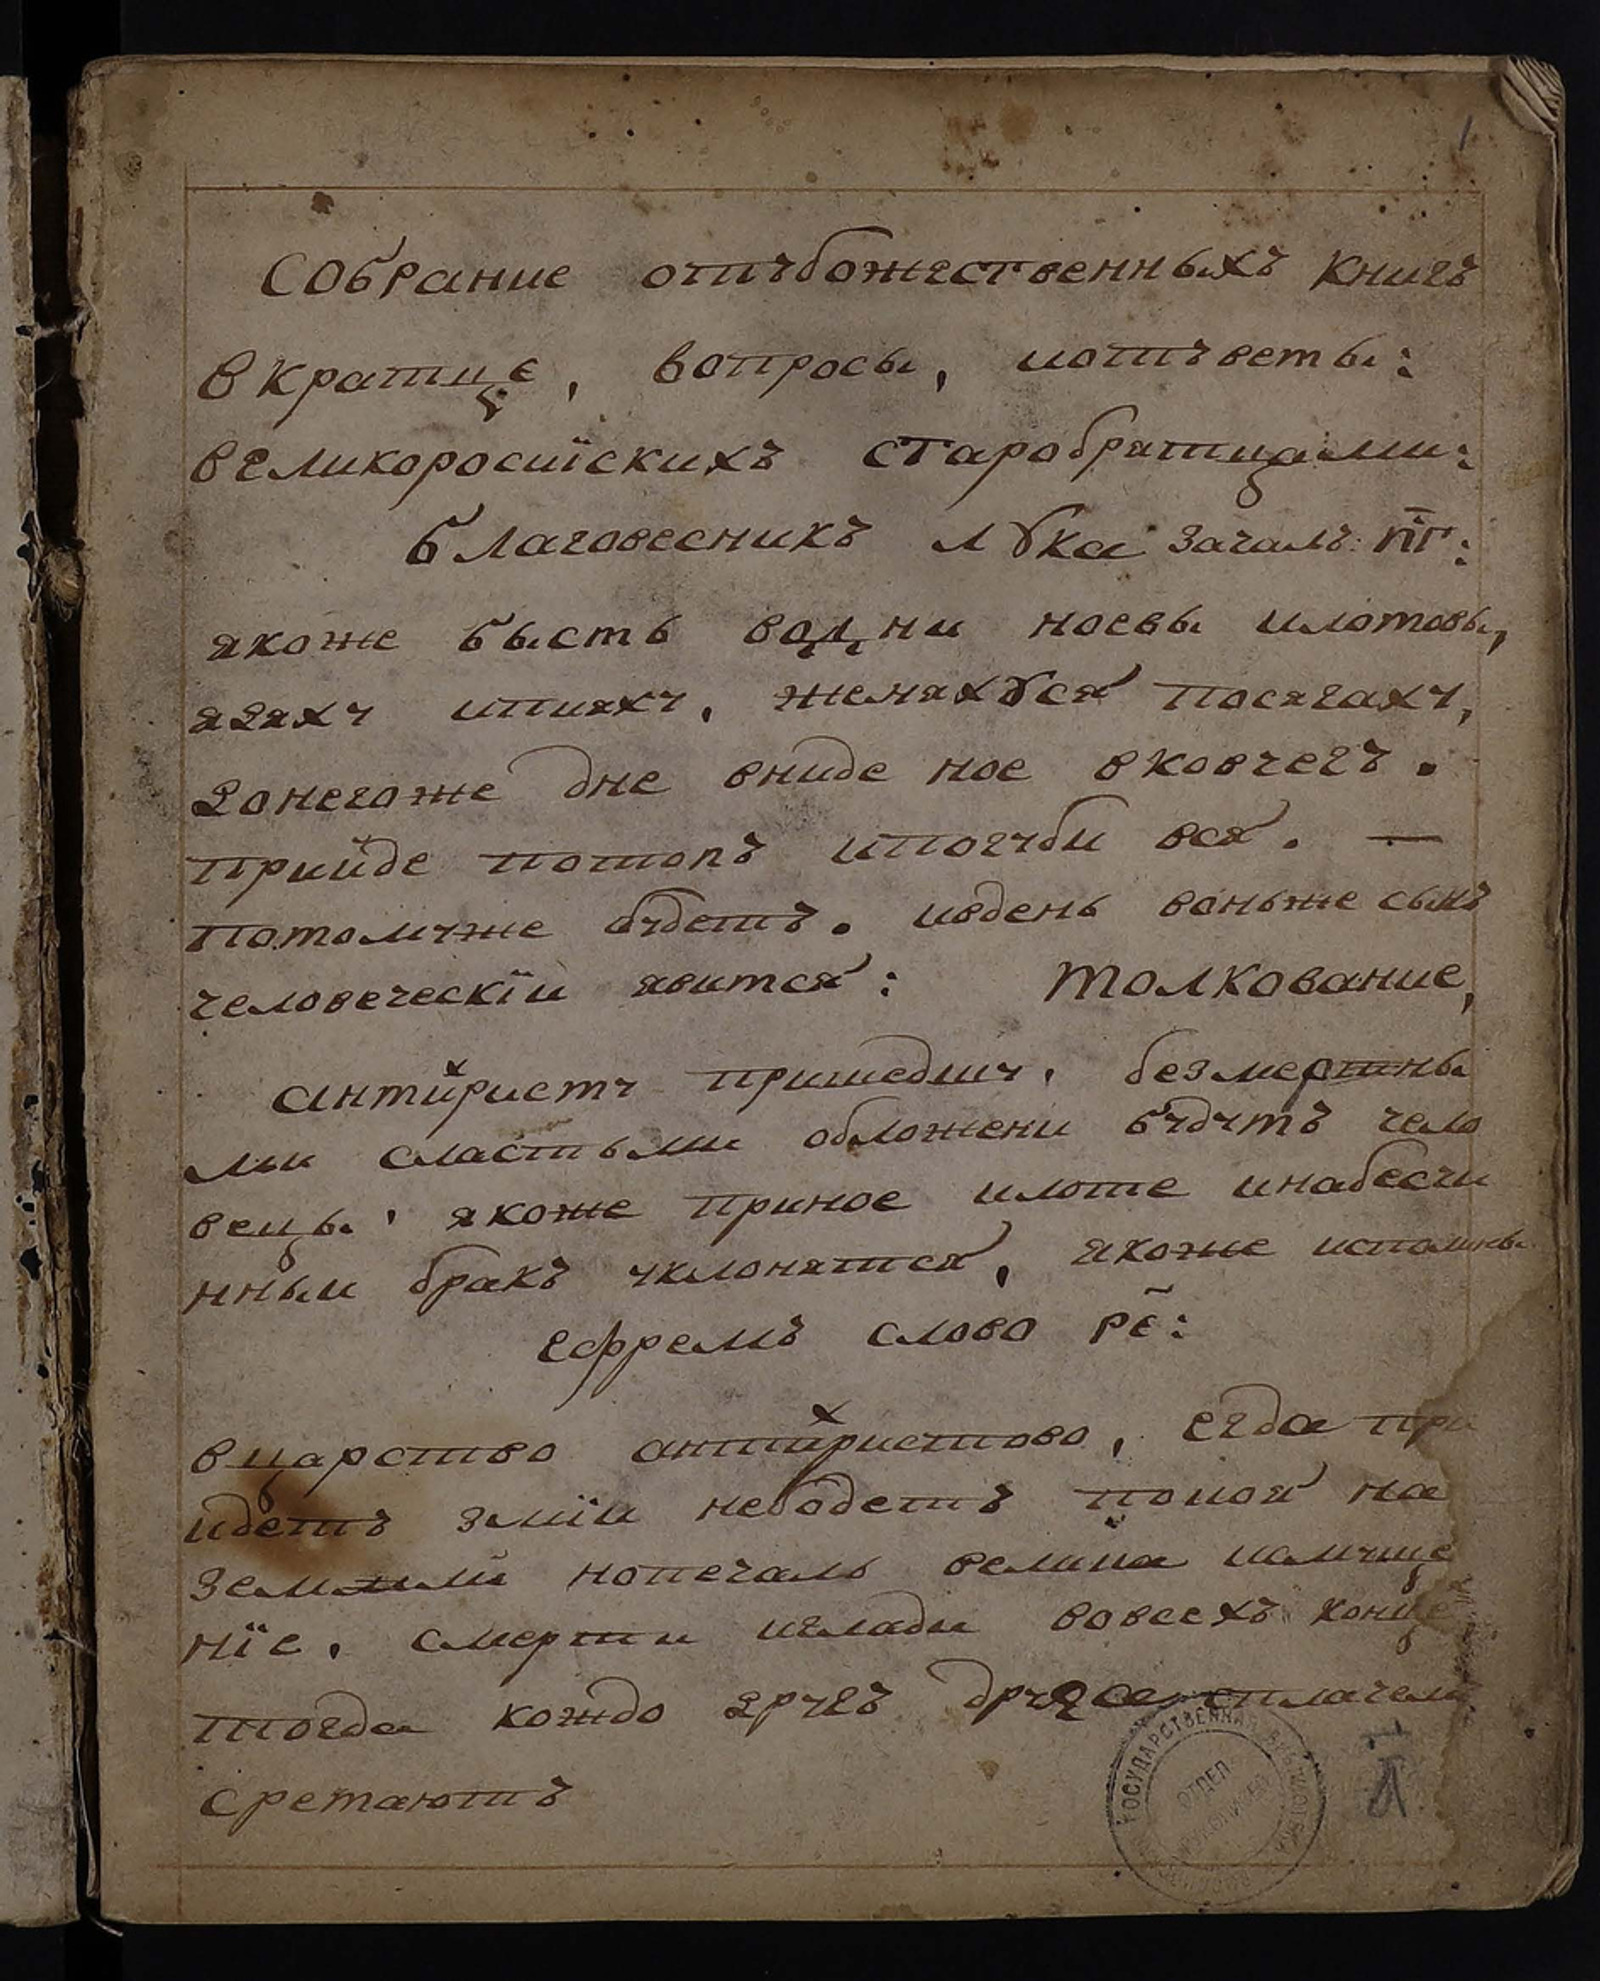 1
Собрание отъбожественныхъ книгъ
вкратце, вопросы, иотъветы:
великоросиїскихъ старобратцами:
благовесникъ лꙋка зачалъ п҃г:
якоже бысть водни ноевы илотовы,
ядяху ипияху, женяхꙋся посягаху,
донегоже дне вниде ное вковчегъ.
прийде потопъ ипогуби вся. —
потомуже будетъ. ивдень воньже сынъ
человеческїи явится: толкование,
антихристъ пришедшу, безмерны
ми сластьми обложени будутъ чело
вецы, якоже приное илоте инабесчи
нныи бракъ уклонятся, якоже исполины
ефремъ слово р҃е:
вцарство антихристово, егда при
идетъ змїи небꙋдетъ покоя на
земли нопечаль велика исмуще
нїе, смерти иглади вовсехъ конце
тогда кождо другъ друга сплачем
сретаютъ
ГОСУДАРСТВЕННАЯ БИБЛИОТЕКА
ОТДЕЛ
РУКОПИСЕЙ
а҃